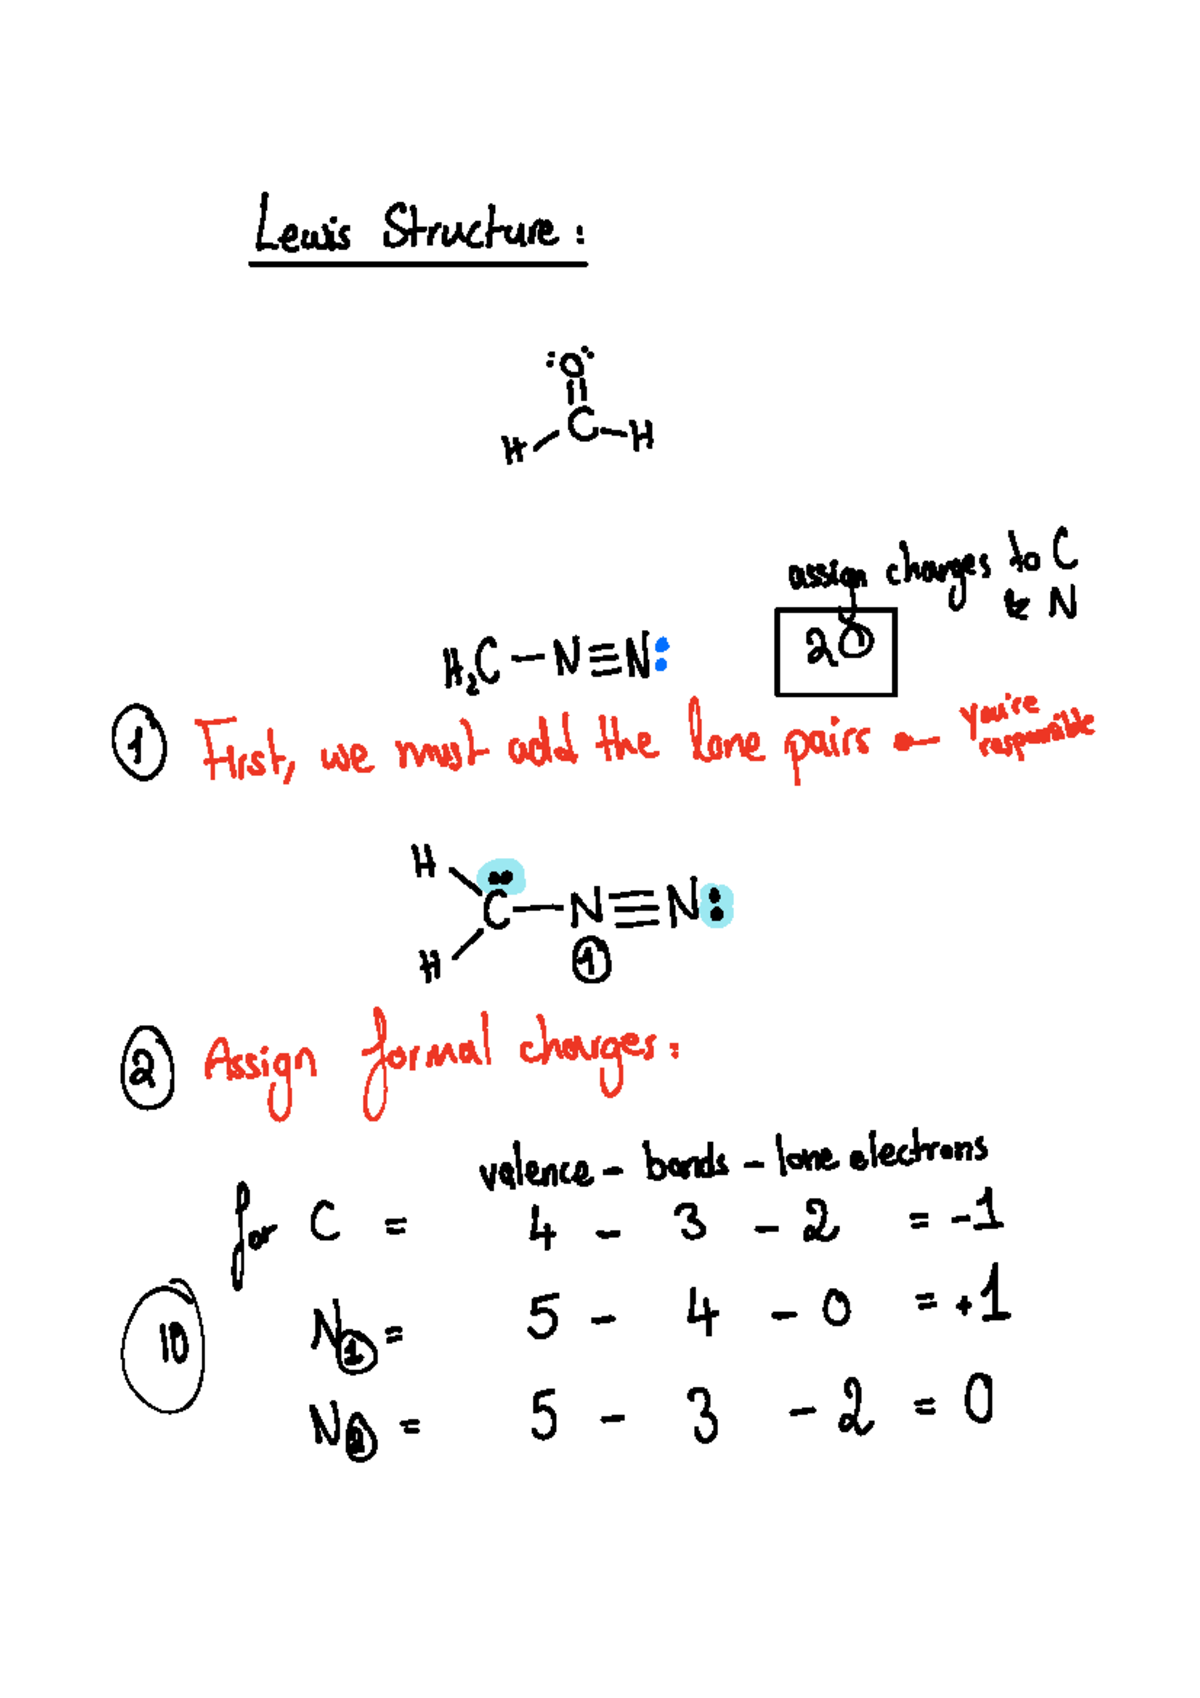 Lewis Structure:
:O:
||
H-C-H
assign charges to C
& N
2①
H₂C-N≡N:
① First, we must add the lone pairs • - you're
responsible
H
C-N≡N:
H ①
② Assign formal charges:
valence - bonds - lone electrons
for C = 4 - 3 - 2 = -1
N① = 5 - 4 - 0 = +1
10
N② = 5 - 3 - 2 = 0